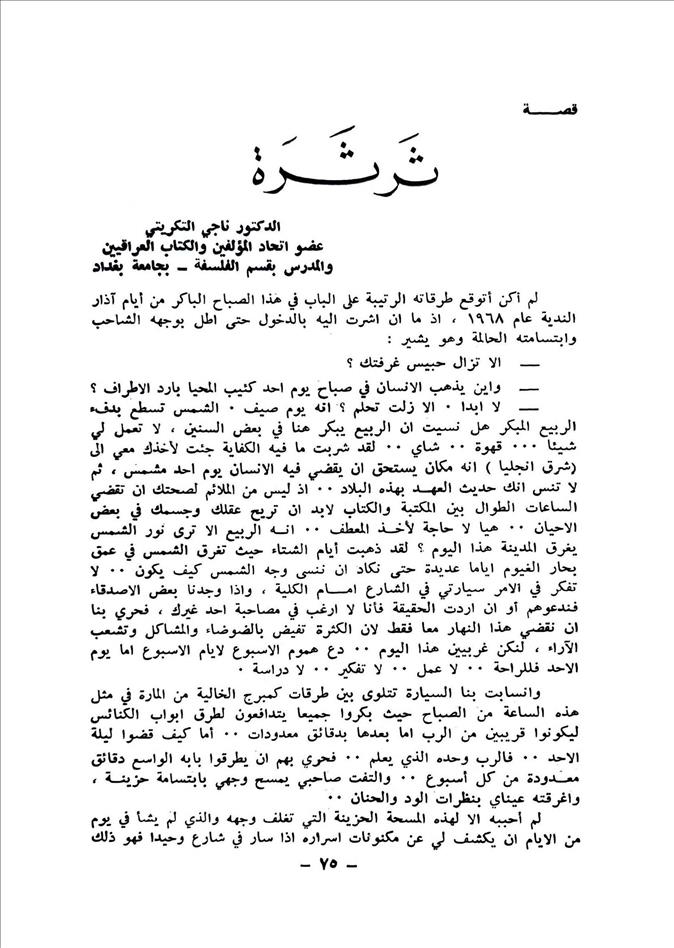 قصـــــة
ثَرثَرَة
الدكتور ناجي التكريتي
عضو اتحاد المؤلفين والكتاب العراقيين
والمدرس بقسم الفلسفة ــ بجامعة بغداد
لم أكن أتوقع طرقاته الرتيبة على الباب في هذا الصباح الباكر من أيام آذار
الندية عام ١٩٦٨ ، اذ ما ان اشرت اليه بالدخول حتى اطل بوجهه الشاحب
وابتسامته الحالمة وهو يشير :
ـــ الا تزال حبيس غرفتك ؟
ـــ واين يذهب الانسان في صباح يوم احد كئيب المحيا بارد الاطراف ؟
ـــ لا ابدا ٠ الا زلت تحلم ؟ انه يوم صيف ٠ الشمس تسطع بدفء
الربيع المبكر هل نسيت ان الربيع يبكر هنا في بعض السنين ، لا تعمل لي
شيئا ٠٠٠ قهوة ٠٠ شاي ٠٠ لقد شربت ما فيه الكفاية جئت لأخذك معي الى
(شرق انجليا ) انه مكان يستحق ان يقضي فيه الانسان يوم احد مشمس ، ثم
لا تنس انك حديث العهـد بهذه البلاد ٠٠ اذ ليس من الملائم لصحتك ان تقضي
الساعات الطوال بين المكتبة والكتاب لابد ان تريح عقلك وجسمك في بعض
الاحيان ٠٠ هيا لا حاجة لأخـذ المعطف ٠٠ انـه الربيع الا ترى نور الشمس
يغرق المدينة هذا اليوم ؟ لقد ذهبت أيام الشتاء حيث تفرق الشمس في عمق
بحار الغيوم اياما عديدة حتى نكاد ان ننسى وجه الشمس كيف يكون ٠٠ لا
تفكر في الامر سيارتي في الشارع امـام الكلية ، واذا وجدنا بعض الاصدقاء
فندعوهم أو ان اردت الحقيقة فأنا لا ارغب في مصاحبة احد غيرك ، فحري بنا
ان نقضي هذا النهار معا فقط لان الكثرة تفيض بالضوضاء والمشاكل وتشعب
الآراء ، لنكن غريبين هذا اليوم ٠٠ دع هموم الاسبوع لايام الاسبوع اما يوم
الاحد فللراحة ٠٠ لا عمل ٠٠ لا تفكير ٠٠ لا دراسة ٠
وانسابت بنا السيارة تتلوى بين طرقات كمبرج الخالية من المارة في مثل
هذه الساعة من الصباح حيث بكروا جميعا يتدافعون لطرق ابواب الكنائس
ليكونوا قريبين من الرب اما بعدها بدقائق معدودات ٠٠ أما كيف قضوا ليلة
الاحد ٠٠ فالرب وحده الذي يعلم ٠٠ فحري بهم ان يطرقوا بابه الواسع دقائق
معـدودة من كل أسبوع ٠٠ والتفت صاحبي يمسح وجهي بابتسامة حزينـة ،
واغرقته عيناي بنظرات الود والحنان ٠٠
لم أحببه الا لهذه المسحة الحزينة التي تغلف وجهه والذي لم يشأ في يوم
من الايام ان يكشف لي عن مكنونات اسراره اذا سار في شارع وحيدا فهو ذلك
ـ ٧٥ ـ